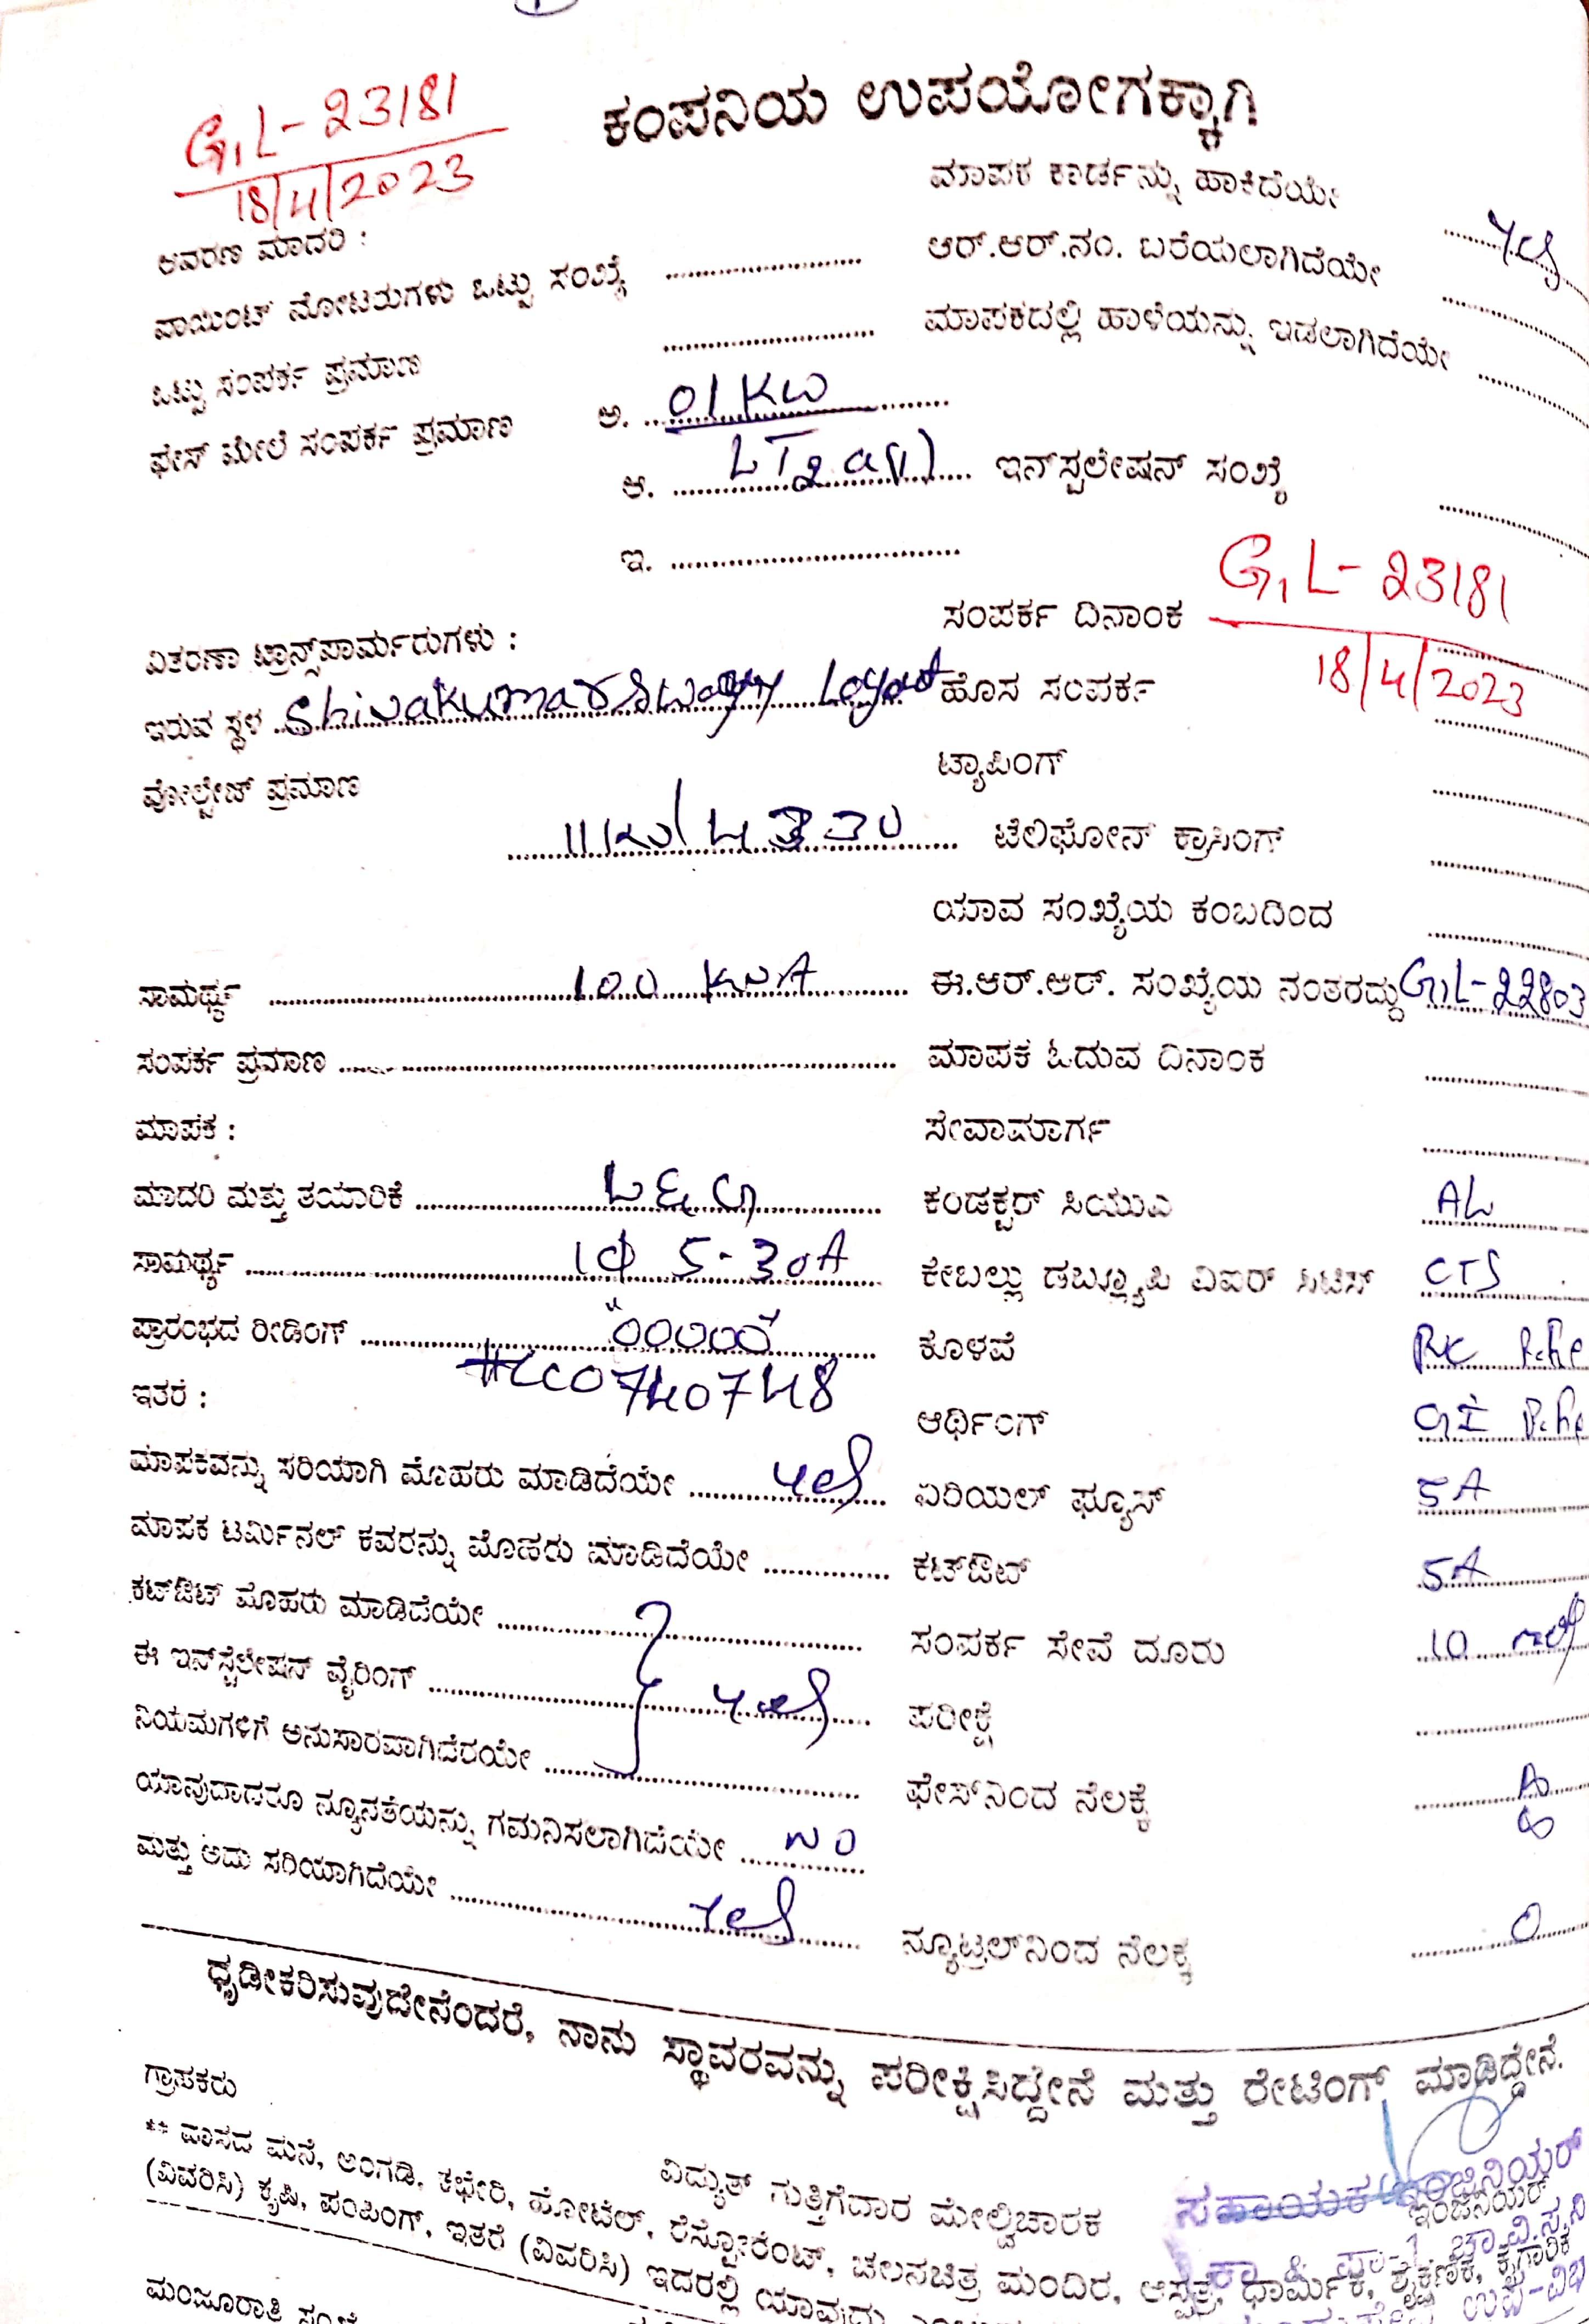 G1L-23181
18/4/2023
ಕಂಪನಿಯ ಉಪಯೋಗಕ್ಕಾಗಿ
ಆವರಣ ಮಾದರಿ :
ಪಾಯಿಂಟ್ ನೋಟರುಗಳು ಒಟ್ಟು ಸಂಖ್ಯೆ
ಒಟ್ಟು ಸಂಪರ್ಕ ಪ್ರಮಾಣ
ಫೇಸ್ ಮೇಲೆ ಸಂಪರ್ಕ ಪ್ರಮಾಣ ಅ. 01 KW
ಆ. LT2 a(1)
ಇ.
ವಿತರಣಾ ಟ್ರಾನ್ಸ್‌ಪಾರ್ಮರುಗಳು :
ಇರುವ ಸ್ಥಳ Shivakumarswamy Layout
ವೋಲ್ಟೇಜ್ ಪ್ರಮಾಣ
11KV/
ಸಾಮರ್ಥ್ಯ 100 KVA
ಸಂಪರ್ಕ ಪ್ರಮಾಣ
ಮಾಪಕ :
ಮಾದರಿ ಮತ್ತು ತಯಾರಿಕೆ L&G
ಸಾಮರ್ಥ್ಯ 1ϕ 5-30A
ಪ್ರಾರಂಭದ ರೀಡಿಂಗ್ "00000"
ಇತರೆ :
ಮಾಪಕವನ್ನು ಸರಿಯಾಗಿ ಮೊಹರು ಮಾಡಿದೆಯೇ yes
ಮಾಪಕ ಟರ್ಮಿನಲ್ ಕವರನ್ನು ಮೊಹರು ಮಾಡಿದೆಯೇ
ಕಟ್‌ಔಟ್ ಮೊಹರು ಮಾಡಿದೆಯೇ
ಈ ಇನ್‌ಸ್ಟೆಲೇಷನ್ ವೈರಿಂಗ್ yes
ನಿಯಮಗಳಿಗೆ ಅನುಸಾರವಾಗಿದೆರಯೇ
ಯಾವುದಾದರೂ ನ್ಯೂನತೆಯನ್ನು ಗಮನಿಸಲಾಗಿದೆಯೇ NO
ಮತ್ತು ಅದು ಸರಿಯಾಗಿದೆಯೇ yes
ಮಾಪಕ ಕಾರ್ಡನ್ನು ಹಾಕಿದೆಯೇ yes
ಆರ್.ಆರ್.ನಂ. ಬರೆಯಲಾಗಿದೆಯೇ
ಮಾಪಕದಲ್ಲಿ ಹಾಳೆಯನ್ನು ಇಡಲಾಗಿದೆಯೇ
ಇನ್‌ಸ್ಪಲೇಷನ್ ಸಂಖ್ಯೆ
G1L-23181
ಸಂಪರ್ಕ ದಿನಾಂಕ 18/4/2023
ಹೊಸ ಸಂಪರ್ಕ
ಟ್ಯಾಪಿಂಗ್
ಟೆಲಿಫೋನ್ ಕ್ರಾಸಿಂಗ್
ಯಾವ ಸಂಖ್ಯೆಯ ಕಂಬದಿಂದ
ಈ.ಆರ್.ಆರ್. ಸಂಖ್ಯೆಯ ನಂತರದ್ದು G1L-22803
ಮಾಪಕ ಓದುವ ದಿನಾಂಕ
ಸೇವಾಮಾರ್ಗ
ಕಂಡಕ್ಟರ್ ಸಿಯುಎ AL
ಕೇಬಲ್ಲು ಡಬ್ಲ್ಯೂಪಿ ವಿಐರ್ ಸಿಟಿಸ್ CTS
ಕೊಳವೆ
ಆರ್ಥಿಂಗ್ GI
ಏರಿಯಲ್ ಫ್ಯೂಸ್ 5A
ಕಟ್‌ಔಟ್ 5A
ಸಂಪರ್ಕ ಸೇವೆ ದೂರು 10
ಪರೀಕ್ಷೆ
ಫೇಸ್‌ನಿಂದ ನೆಲಕ್ಕೆ
ನ್ಯೂಟ್ರಲ್‌ನಿಂದ ನೆಲಕ್ಕ 0
ಧೃಡೀಕರಿಸುವುದೇನೆಂದರೆ, ನಾನು ಸ್ಥಾವರವನ್ನು ಪರೀಕ್ಷಿಸಿದ್ದೇನೆ ಮತ್ತು ರೇಟಿಂಗ್ ಮಾಡಿದ್ದೇನೆ.
ಗ್ರಾಹಕರು
ವಿದ್ಯುತ್ ಗುತ್ತಿಗೆದಾರ ಮೇಲ್ವಿಚಾರಕ
ಸಹಾಯಕ ಇಂಜಿನಿಯರ್
** ವಾಸದ ಮನೆ, ಅಂಗಡಿ, ಕಛೇರಿ, ಹೋಟೆಲ್, ರೆಸ್ಟೋರೆಂಟ್, ಚಲನಚಿತ್ರ ಮಂದಿರ, ಆಸ್ಪತ್ರೆ, ಧಾರ್ಮಿಕ, ಶೈಕ್ಷಣಿಕ, ಕೈಗಾರಿಕೆ
(ವಿವರಿಸಿ) ಕೃಷಿ, ಪಂಪಿಂಗ್, ಇತರೆ (ವಿವರಿಸಿ) ಇದರಲ್ಲಿ ಯಾವುದು